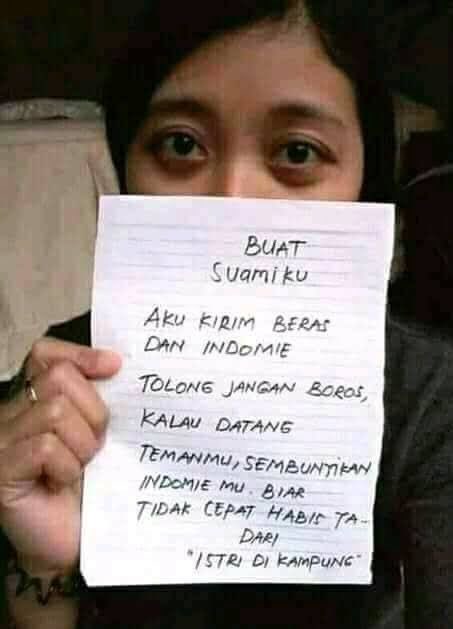 BUAT
SuamiKu
AKU KIRIM BERAS
DAN INDOMIE
TOLONG JANGAN BOROS,
KALAU DATANG
TEMANMU, SEMBUNYIKAN
INDOMIE MU. BIAR
TIDAK CEPAT HABIS TA..
DARI
"ISTRI DI KAMPUNG"